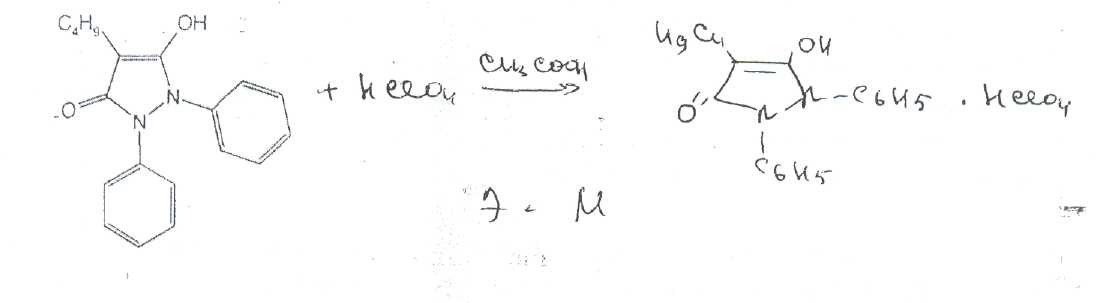 C4H9 OH
O
N
N
+ HClO4 CH3COOH
H9C4 OH
O N N - C6H5 . HClO4
C6H5
Э = M